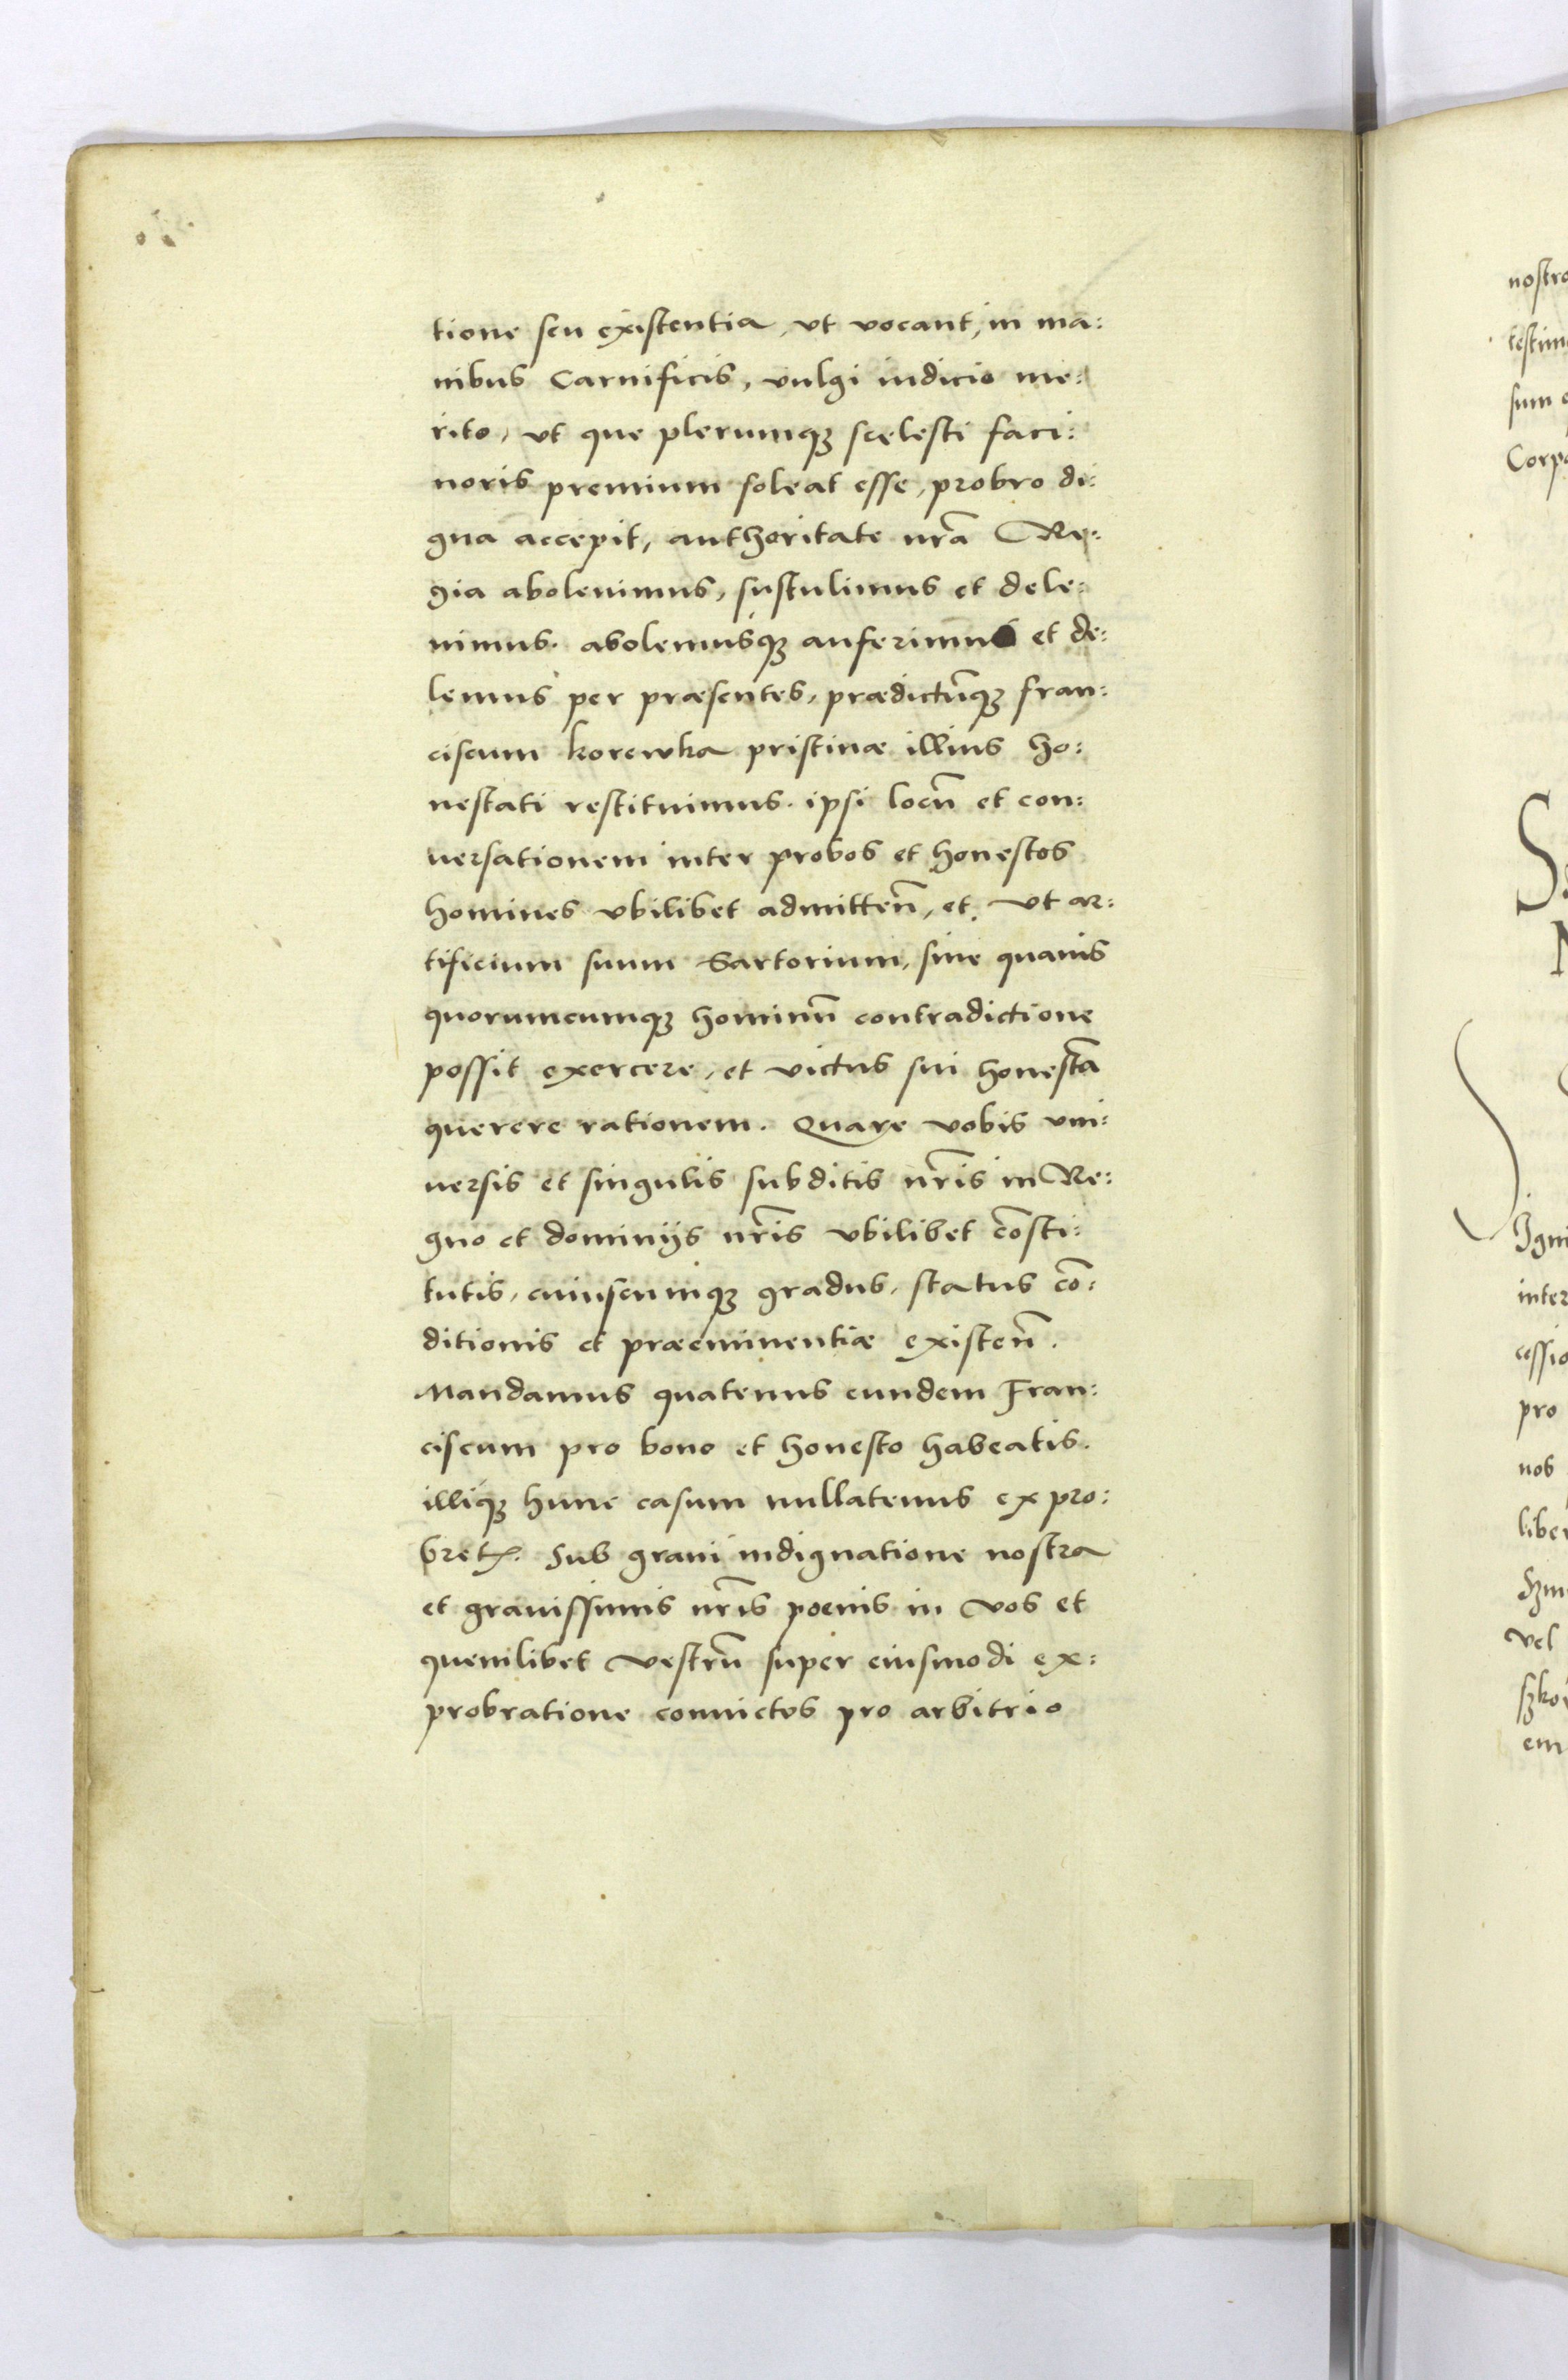 tione seu existentia, vt vocant, in ma:
nibus Carnificis, vulgi iudicio me:
rito, vt que plerumqꝫ scelesti faci:
noris premium soleat esse, probro di:
gna accepit, authoritate nr̃a Re:
gia aboleuimus, sustulimus et dele:
uimus. abolemusqꝫ auferimus et de:
lemus per præsentes, prædictũqꝫ fran:
ciscum korewka pristinæ illius ho:
nestati restituimus. ipsi locũ et con:
uersationem inter probos et honestos
homines vbilibet admitteñ, et vt ar:
tificium suum Sartorium, sine quauis
quorumcumqꝫ hominũ contradictione
possit exercere, et victus sui honestã
querere rationem. Quare vobis vni:
uersis et singulis subditis nr̃is in Re:
gno et dominijs nr̃is vbilibet cõsti:
tutis, cuiuscumqꝫ gradus, status cõ:
ditionis et præeminentiæ existeñ.
Mandamus quatenus eundem Fran:
ciscum pro bono et honesto habeatis.
illiqꝫ hunc casum nullatenus expro:
bret. Sub graui indignatione nostra
et grauissimis nr̃is poenis in vos et
quemlibet vestrũ super eiusmodi ex:
probratione conuictos pro arbitrio
nostro
sum
pro
nos
vel
em